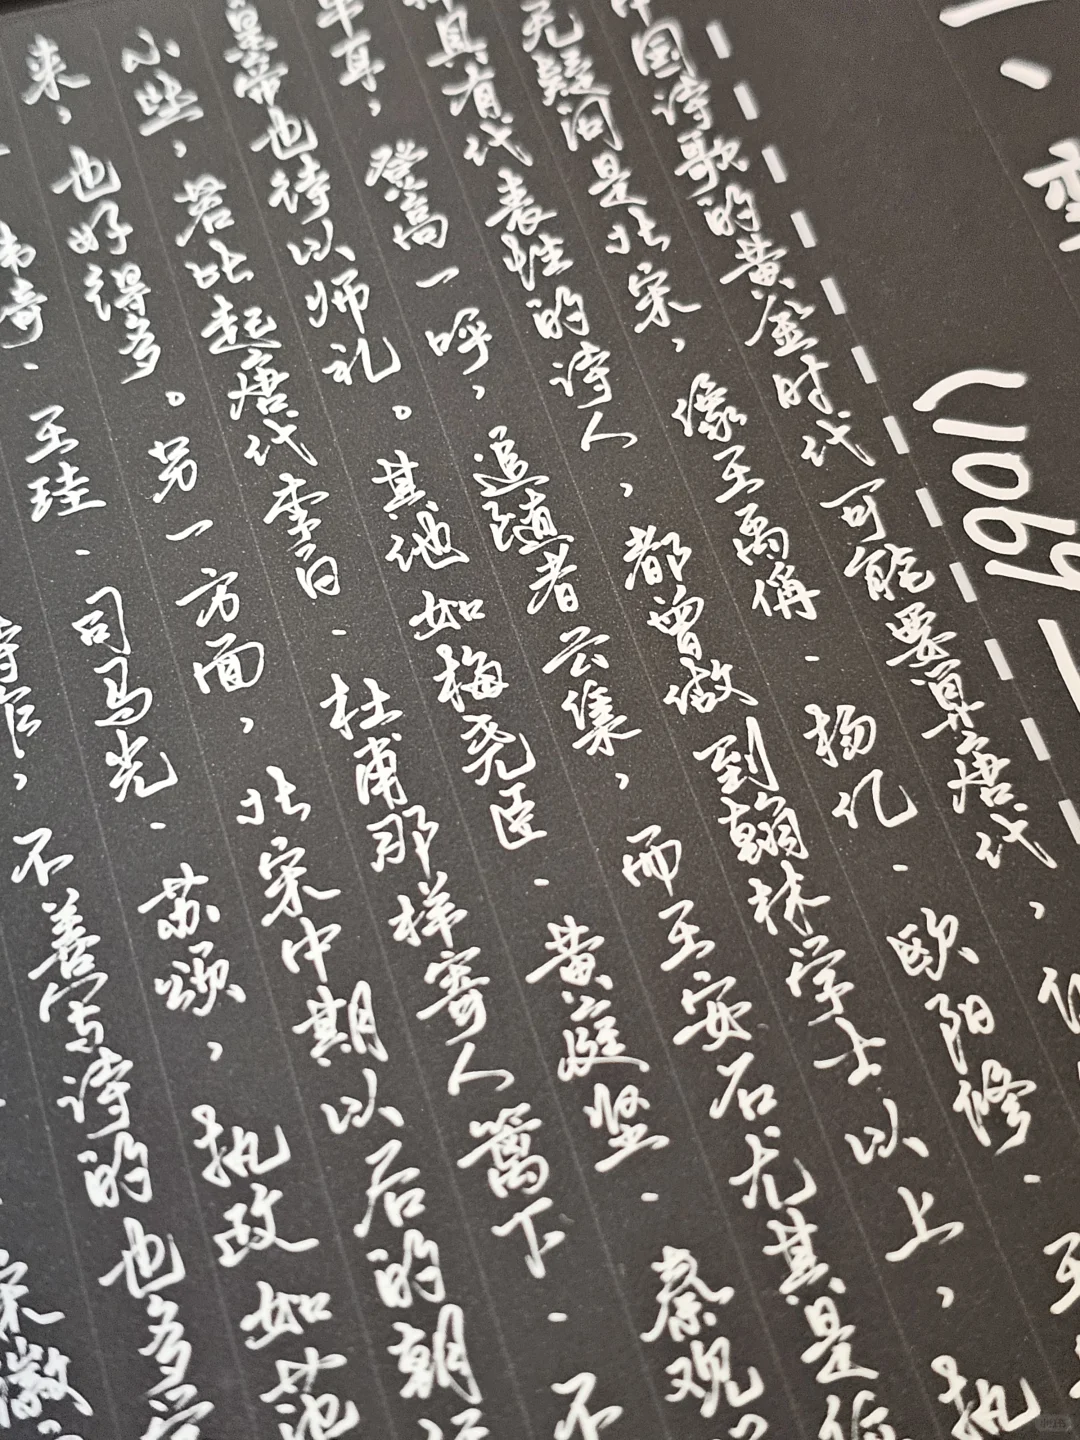 一、
(1069—
中国诗歌的黄金时代可能要算唐代，但
无疑问是北宋，像王禹偁、杨亿、欧阳修、王
具有代表性的诗人，都曾做到翰林学士以上，执
牛耳，登高一呼，追随者云集，而王安石尤其是
皇帝也待以师礼。其他如梅尧臣、黄庭坚、秦观
小些，若比起唐代李白、杜甫那样寄人篱下、不
来，也好得多。另一方面，北宋中期以后的朝
、王珪、司马光、苏颂，执政如范
，不善写诗的也多
宋徽